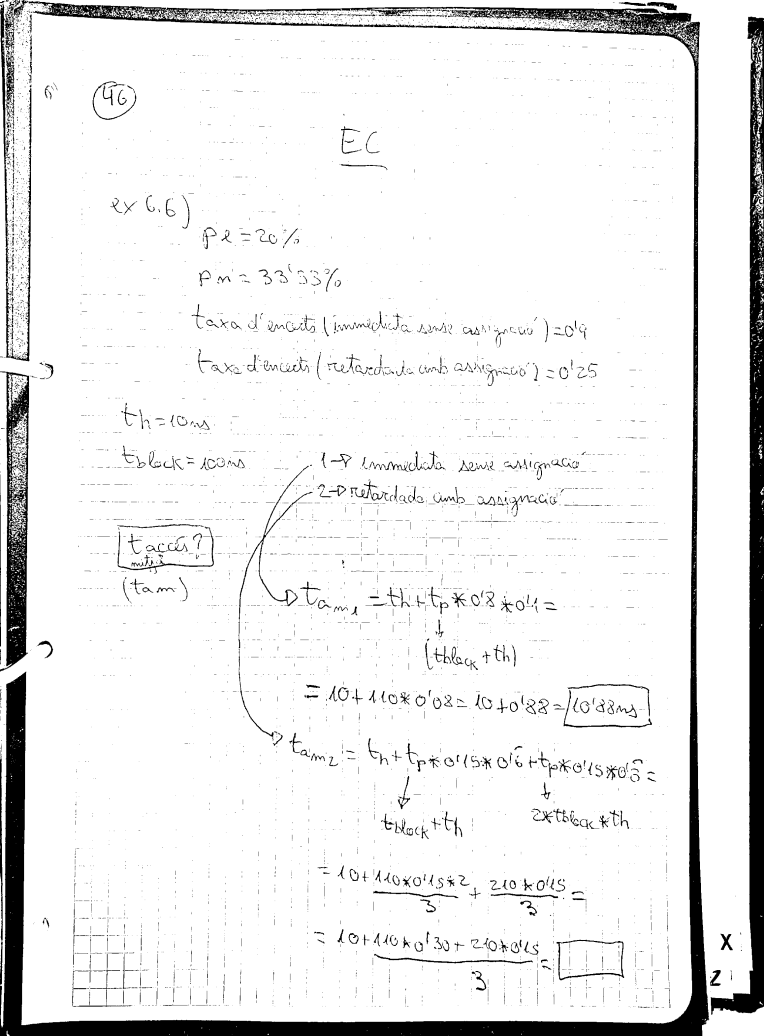 46
EC
ex 6.6)
pe = 20%
pm = 33'33%
taxa d'encerts (immediata sense assignació) = 0'9
taxa d'encerts (retardada amb assignació) = 0'25
th = 10ns
tblock = 100ns
1 → immediata sense assignació
2 → retardada amb assignació
t accés?
mitjà
(tam)
tam1 = th + tp * 0'8 * 0'1 =
(tblock + th)
= 10 + 110 * 0'08 = 10 + 0'88 = 10'88ns
tam2 = th + tp * 0'15 * 0'6 + tp * 0'15 * 0'3 =
tblock + th
2*tblock * th
= 10 + 110*0'15*2/3 + 210*0'15/3 =
= 10 + 110*0'30 + 210*0'15/3 =
X
2